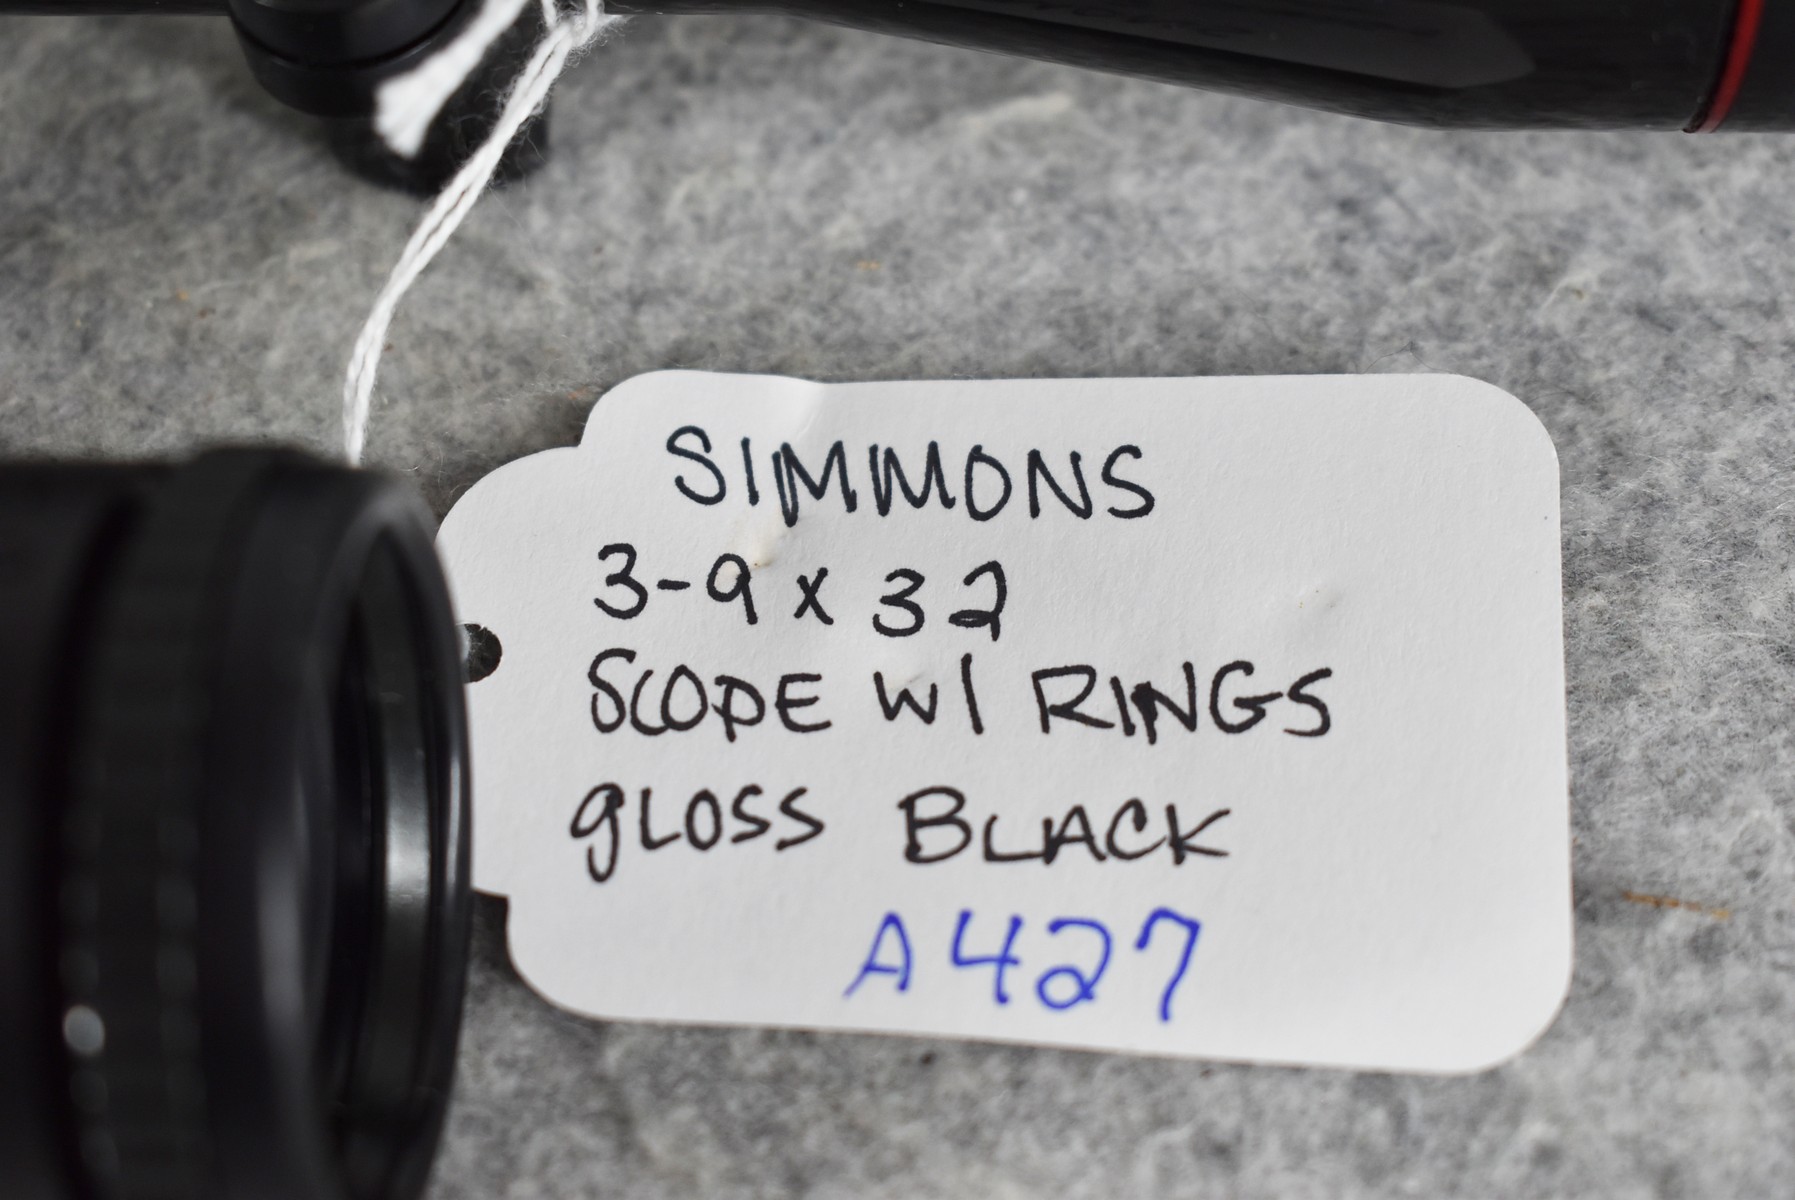 SIMMONS
3-9 x 32
SCOPE w/ RINGS
gLOSS BLACK
A427